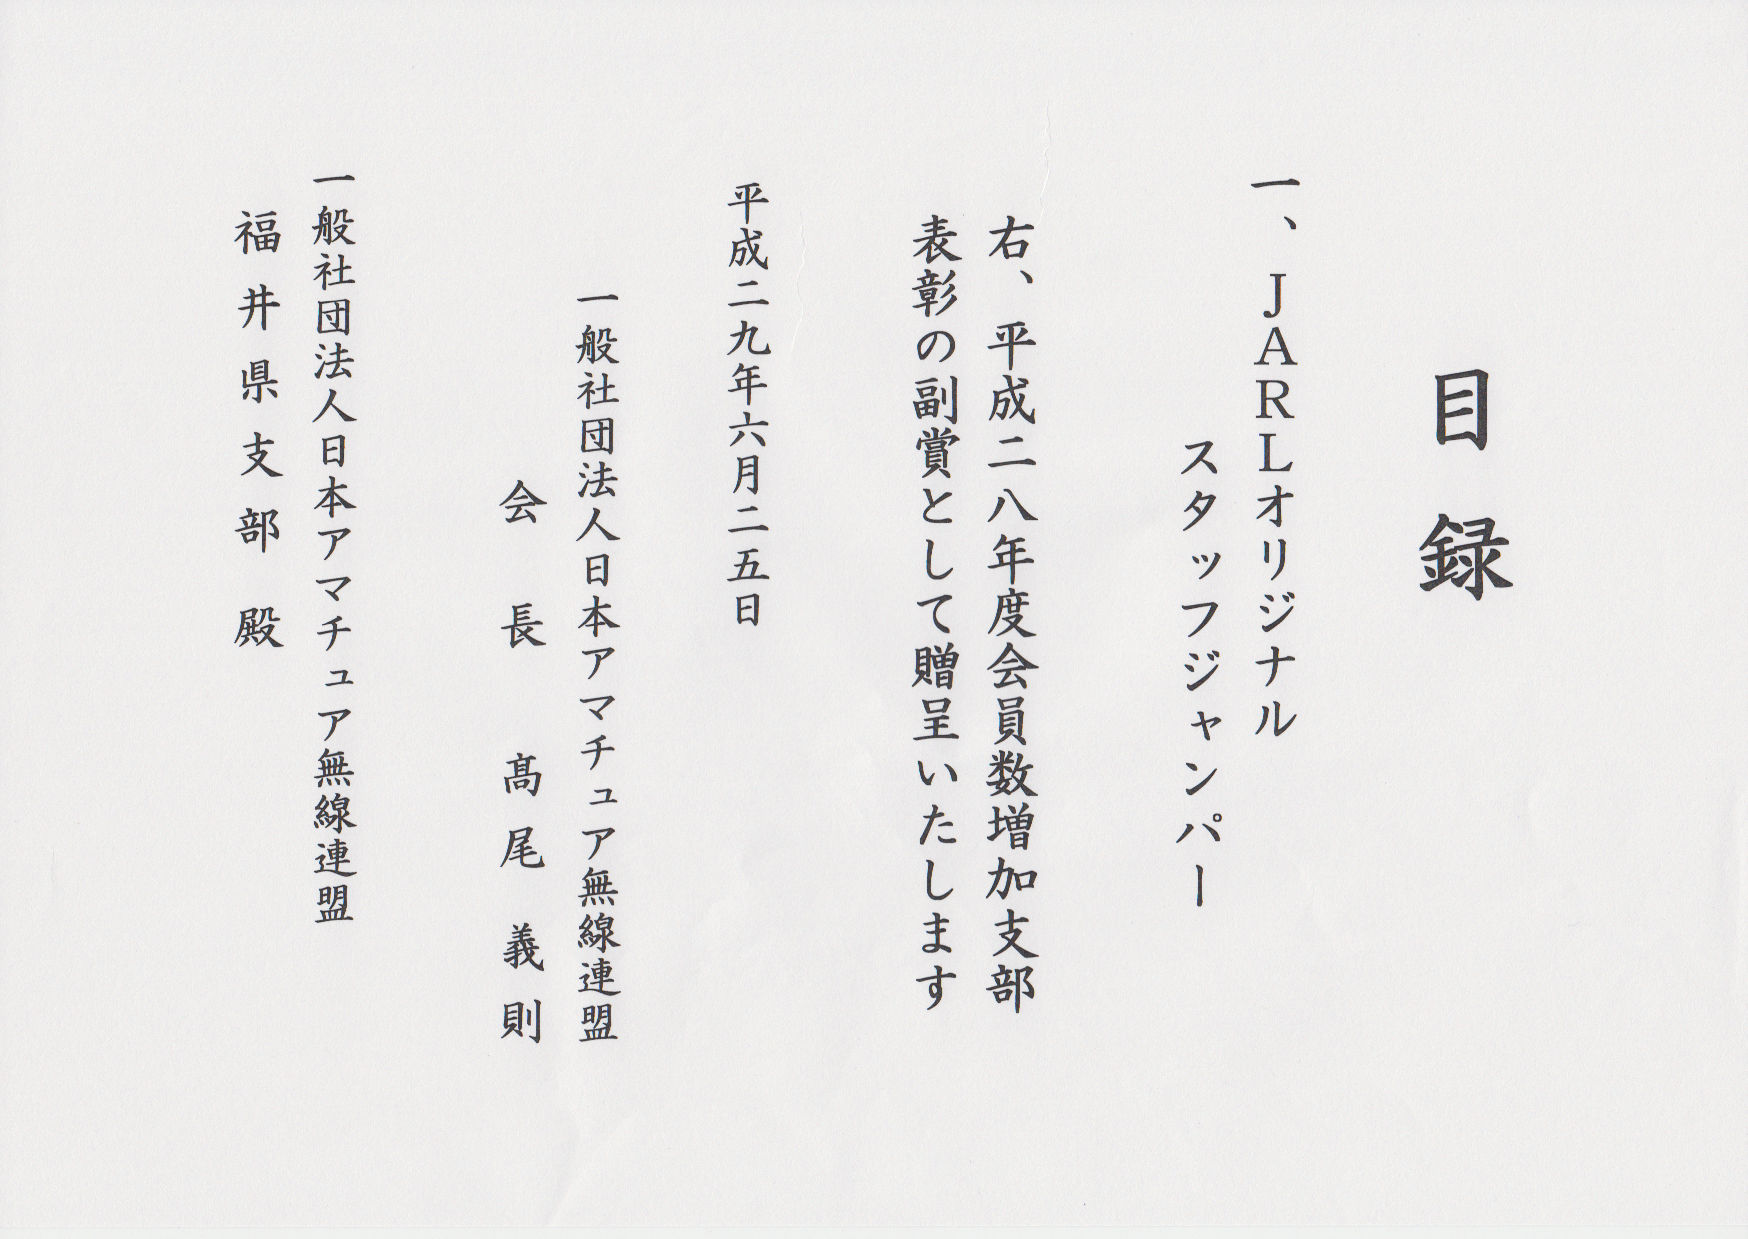 目録
一、JARLオリジナル
スタッフジャンパー
右、平成二八年度会員数増加支部
表彰の副賞として贈呈いたします
平成二九年六月二五日
一般社団法人日本アマチュア無線連盟
会長 髙尾義則
一般社団法人日本アマチュア無線連盟
福井県支部 殿